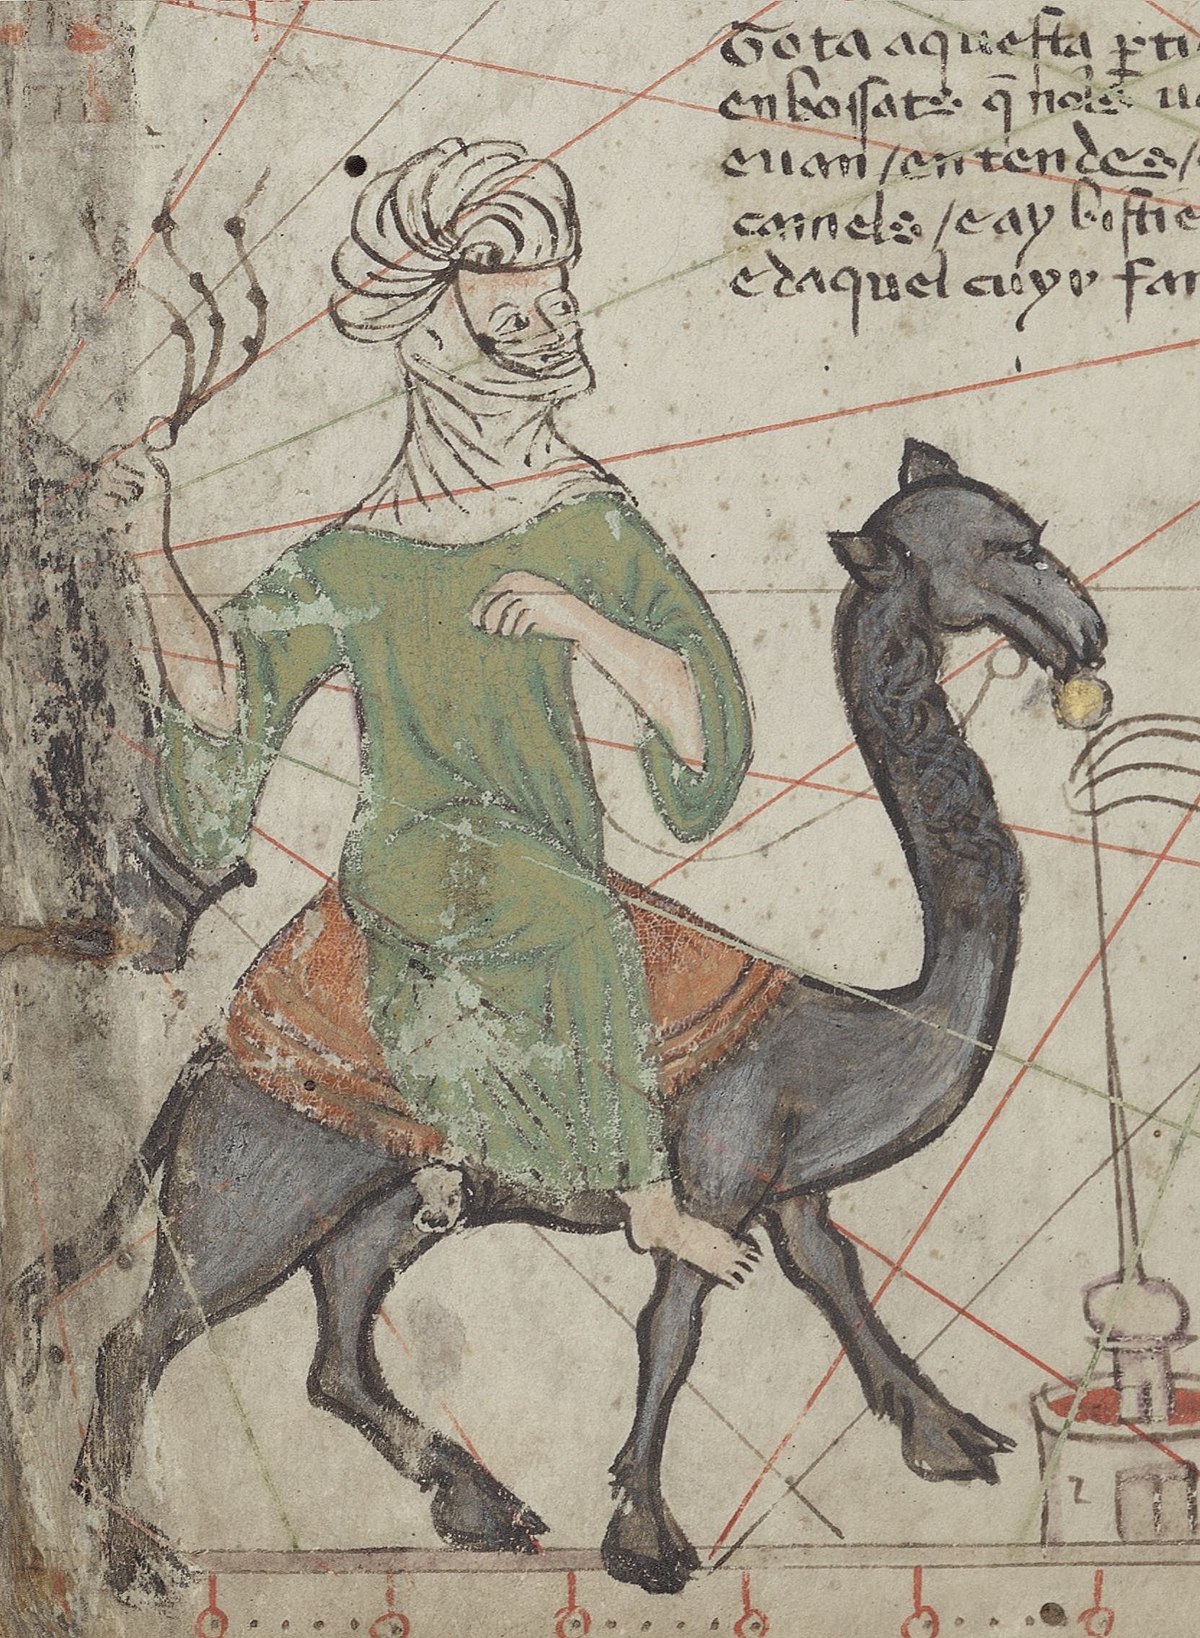 Tota aquesta ꝑti
enbossats q̄ nols ue
euan / en tendes /
camels / e ay bistie
e daquel cuyr fan
2